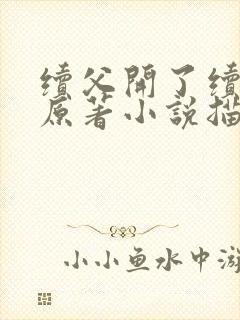 續父開了續
原著小說描
小小鱼水中游